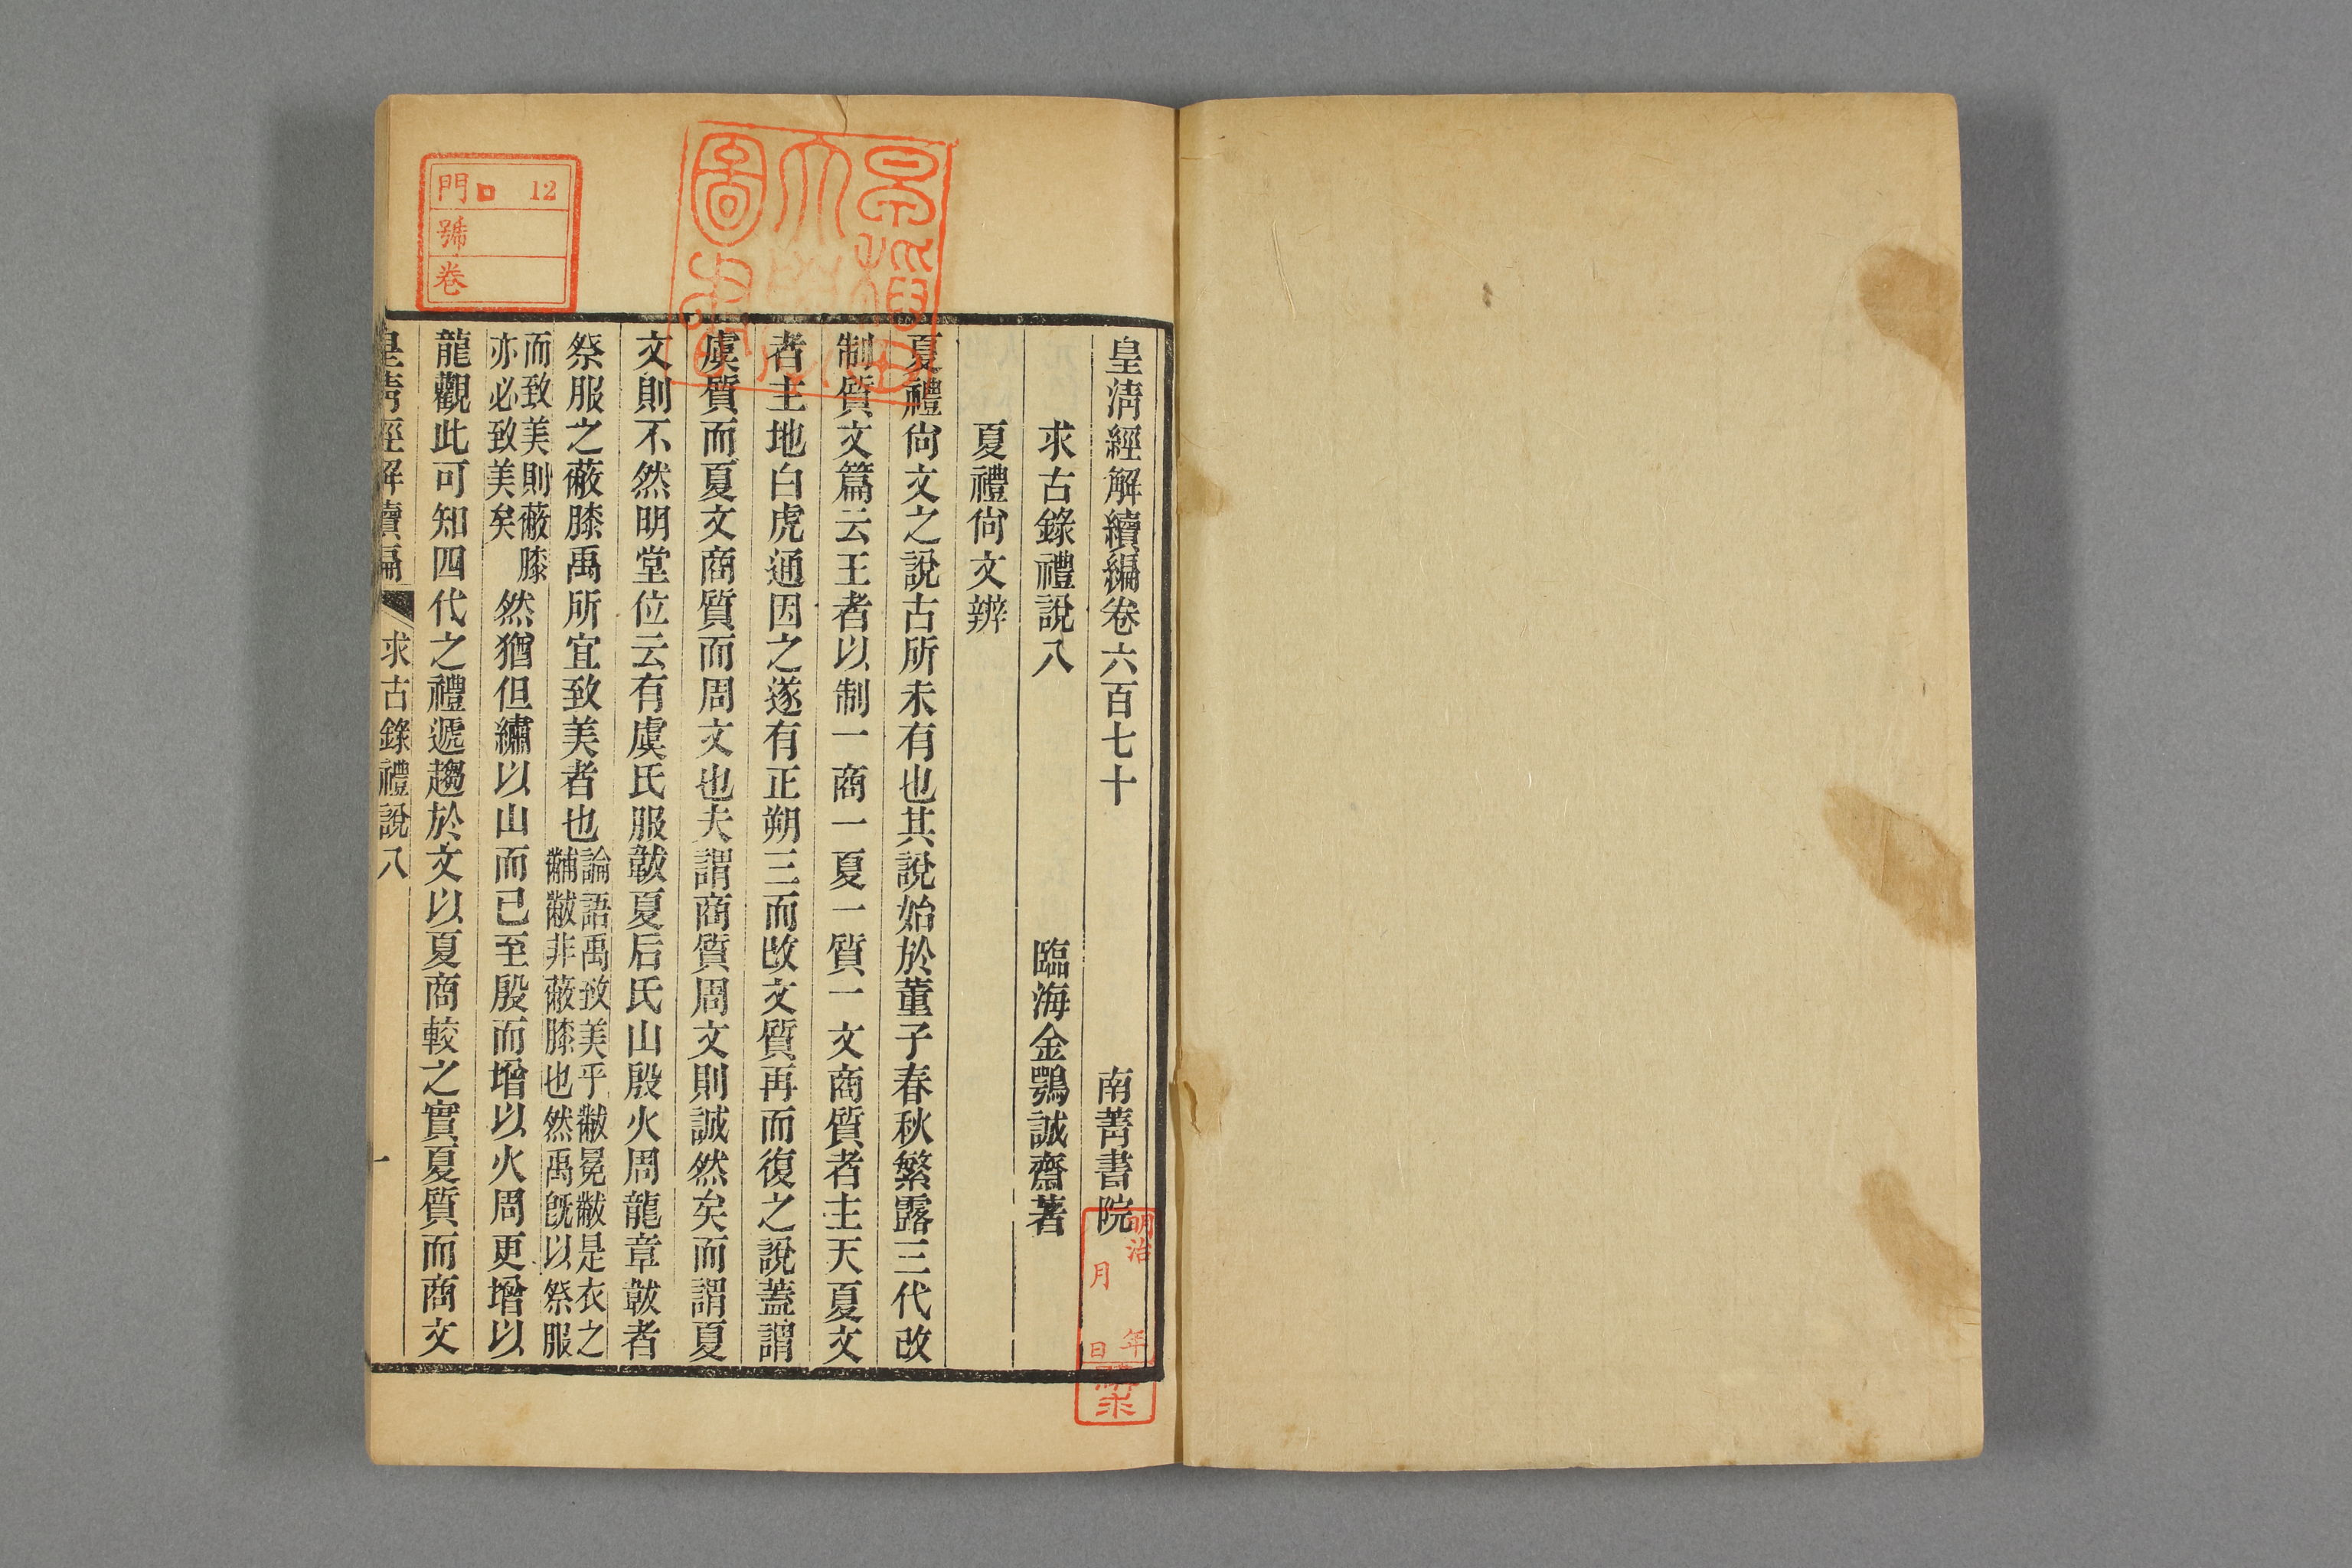 皇清經解續編卷六百七十
南菁書院
求古錄禮說八
臨海金鶚誠齋著
夏禮尙文辨
夏禮尙文之說古所未有也其說始於董子春秋繁露三代改
制質文篇云王者以制一商一夏一質一文商質者主天夏文
者主地白虎通因之遂有正朔三而改文質再而復之說蓋謂
虞質而夏文商質而周文也夫謂商質周文則誠然矣而謂夏
文則不然明堂位云有虞氏服韍夏后氏山殷火周龍章韍者
祭服之蔽膝禹所宜致美者也
論語禹致美乎黻冕黻是衣之
黼黻非蔽膝也然禹旣以祭服
而致美則蔽膝
亦必致美矣
然猶但繡以山而已至殷而增以火周更增以
龍觀此可知四代之禮遞趨於文以夏商較之實夏質而商文
皇清經解續編
求古錄禮說八
一
門 12
號
卷
明治
年
月
日
圖書